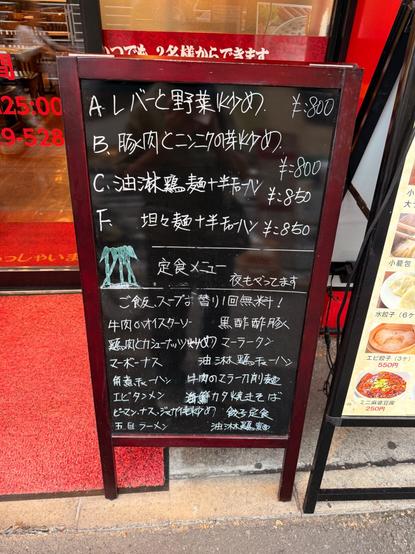 いつでも 2名様からできます
25:00
9-528
っしゃいま
A. レバーと野菜炒め. ¥:800
B. 豚肉とニンニクの芽炒め.
¥:800
C. 油淋鶏麺+半チャーハン ¥:850
F. 坦々麺+半チャーハン ¥:850
定食メニュー
夜もやってます
ご飯、スープお替り1回無料!
牛肉のオイスターソー 黒酢酢豚
鶏肉とカシューナッツ炒め マーラータン
マーボーナス 油淋鶏チャーハン
角煮チャーハン 牛肉のマーラー刀削麺
エビタンメン 海鮮カタ焼きそば
ピーマン、ナス、ジャガ炒め 餃子定食
五目ラーメン 油淋鶏麺
小籠包
水餃子(6ヶ
エビ餃子(3ヶ)
550円
ミニ麻婆豆腐
250円